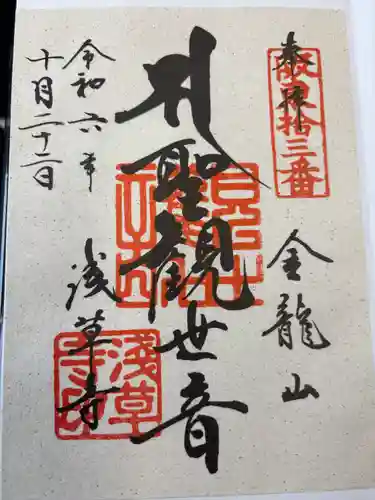 奉拝
坂東拾三番
金龍山
聖観世音
浅草寺
浅草寺印
令和六年
十月二十二日